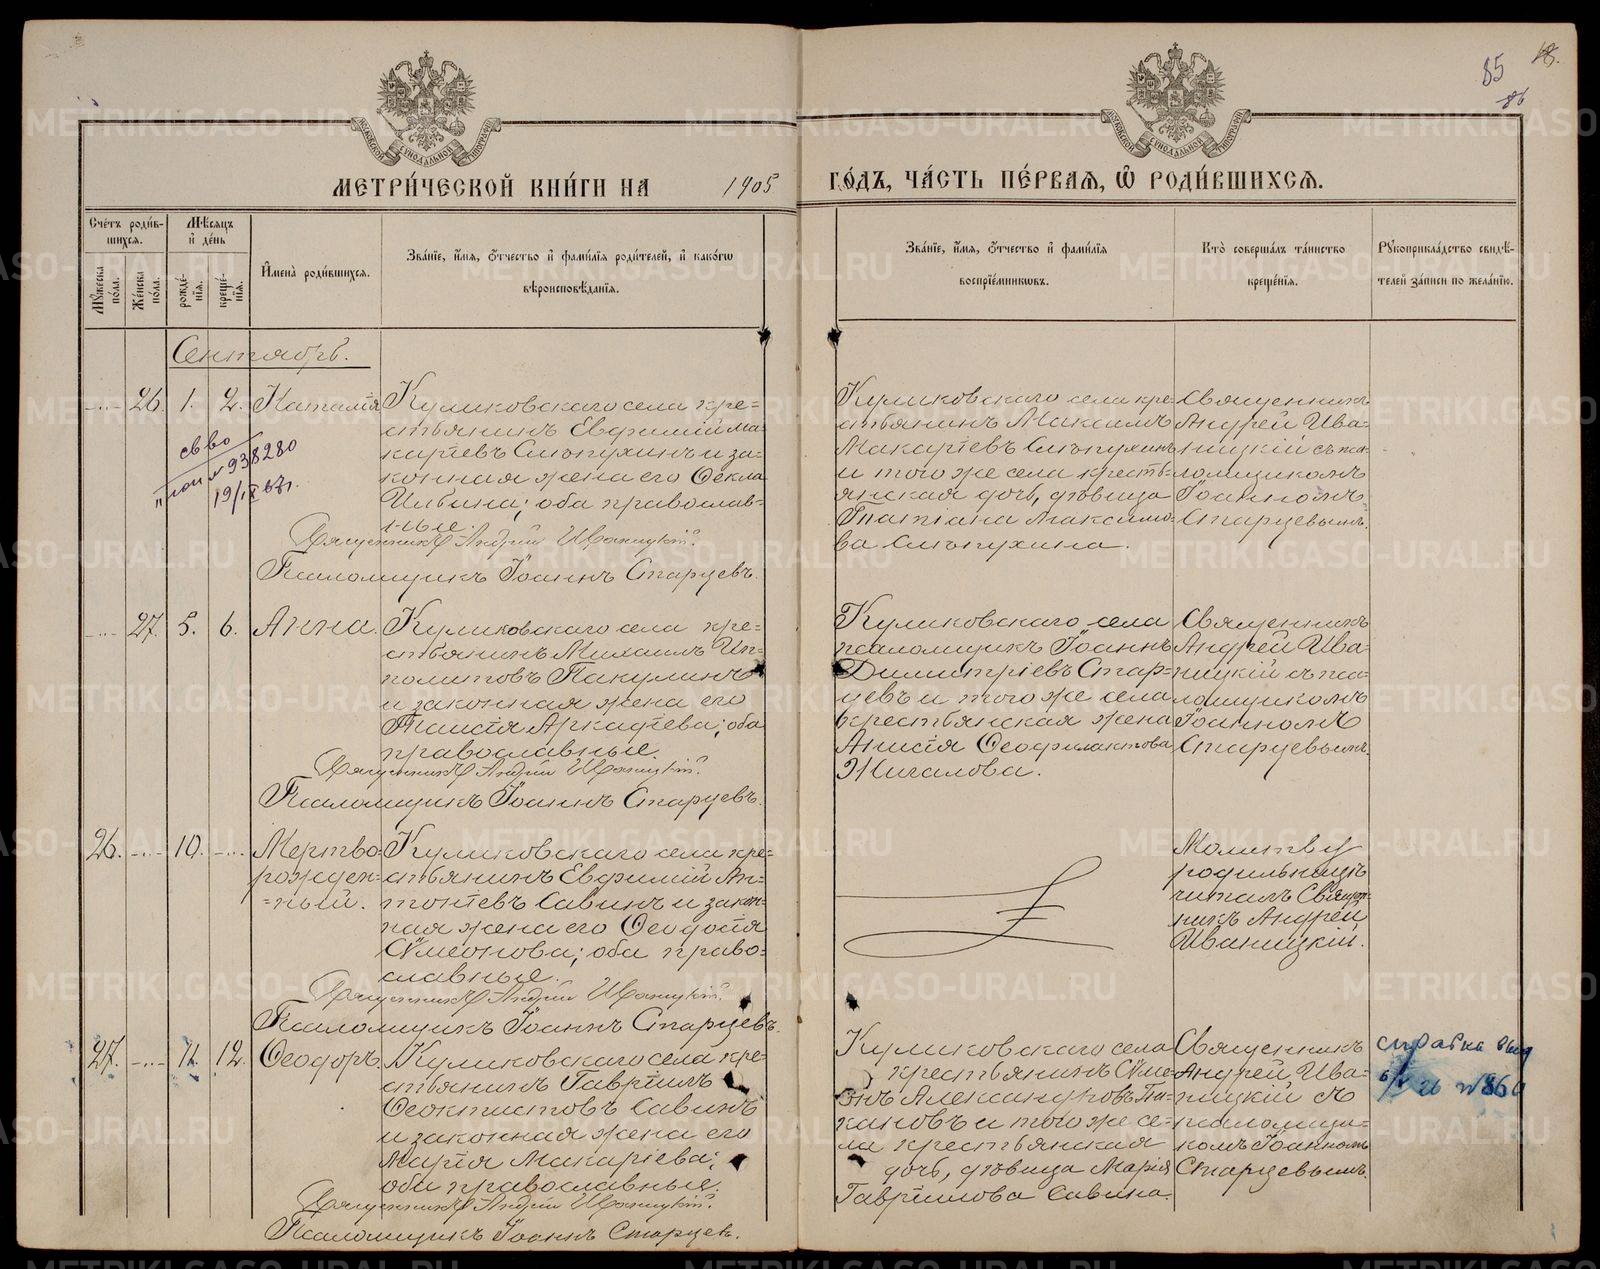 85
86
МОСКОВСКОЙ СУНОДАЛЬНОЙ ТИПОГРАФІИ
МОСКОВСКОЙ СУНОДАЛЬНОЙ ТИПОГРАФІИ
МЕТРИ́ЧЕСКОЙ КНИ́ГИ НА 1905 ГО́ДЪ, ЧА́СТЬ ПЕ́РВАѦ, Ѡ҆ РОДИ́ВШИХСѦ.
Сче́тъ роди́в-
шихсѧ.
Мѣ́сѧцъ
и҆ де́нь
Мꙋ́жеска
по́ла.
Же́нска
по́ла.
рожде́-
нїѧ.
креще́-
нїѧ.
И҆мена̀ роди́вшихсѧ.
Зва́нїе, и҆́мѧ, ѻ҆́тчество и҆ фами́лїѧ роди́телей, и҆ како́гѡ
вѣроисповѣ́данїѧ.
Зва́нїе, и҆́мѧ, ѻ҆́тчество и҆ фами́лїѧ
воспрїе́мникѡвъ.
Кто̀ соверша́лъ та́инство
креще́нїѧ.
Рꙋкоприкла́дство свидѣ́-
телей за́писи по жела́нїю.
Сентябрь.
26. 1. 2. Наталія
Куликовскаго села кре=
стьянинъ Евфимій Ма-
каріевъ Слѣпухинъ и за-
конная жена его Ѳекла
Ильина; оба православ-
ные.
Священникъ Андрей Иваницкій.
Псаломщикъ Іоаннъ Старцевъ.
св во
№ 938280
19/IX 67г.
Куликовскаго села кре-
стьянинъ Максимъ
Макаріевъ Слѣпухинъ
и того же села кресть-
янская дочь, дѣвица
Татіана Максимо-
ва Слѣпухина.
Священникъ
Андрей Ива-
ницкій съ пса-
ломщикомъ
Іоанномъ
Старцевымъ.
27. 5. 6. Анна.
Куликовскаго села кре=
стьянинъ Михаилъ Ип-
политовъ Пакулинъ
и законная жена его
Таисія Аркадіева; оба
православные.
Священникъ Андрей Иваницкій.
Псаломщикъ Іоаннъ Старцевъ.
Куликовскаго села
псаломщикъ Іоаннъ
Димитріевъ Стар-
цевъ и того же села
крестьянская жена
Анисія Ѳеофилактова
Жигалова.
Священникъ
Андрей Ива-
ницкій съ пса-
ломщикомъ
Іоанномъ
Старцевымъ.
26. 10. Мертво-
рожден=
=ный.
Куликовскаго села кре=
стьянинъ Евфимій Ан-
тоніевъ Савинъ и закон-
ная жена его Ѳеодосія
Сѵмеонова; оба право-
славные.
Священникъ Андрей Иваницкій.
Псаломщикъ Іоаннъ Старцевъ.
Молитву
родильницѣ
читалъ Священ-
никъ Андрей
Иваницкій.
27. 11. 12. Ѳеодоръ.
Куликовскаго села кре-
стьянинъ Гавріилъ
Ѳеоктистовъ Савинъ
и законная жена его
Марія Макаріева;
оба православные.
Священникъ Андрей Иваницкій.
Псаломщикъ Іоаннъ Старцевъ.
Куликовскаго села
крестьянинъ Сѵме-
онъ Александровъ
и того же се-
ла крестьянская
дочь, дѣвица Марія
Гавріилова Савина.
Священникъ
Андрей Ива-
ницкій съ
псаломщи-
комъ Іоанномъ
Старцевымъ.
справка выд
26 №860
METRIKI.GASO-URAL.RU